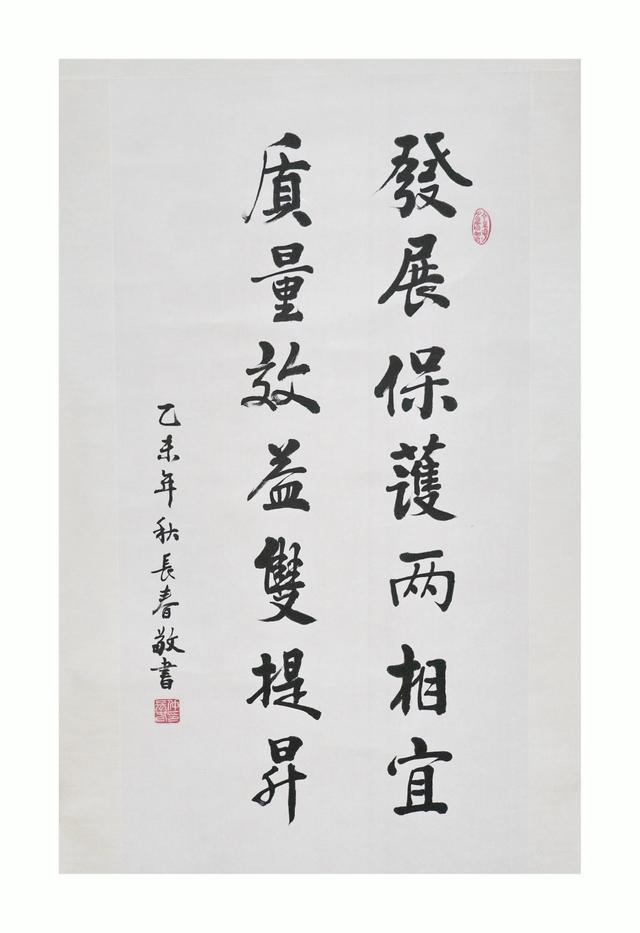 發展保護两相宜
质量效益雙提昇
乙未年秋長春敬書